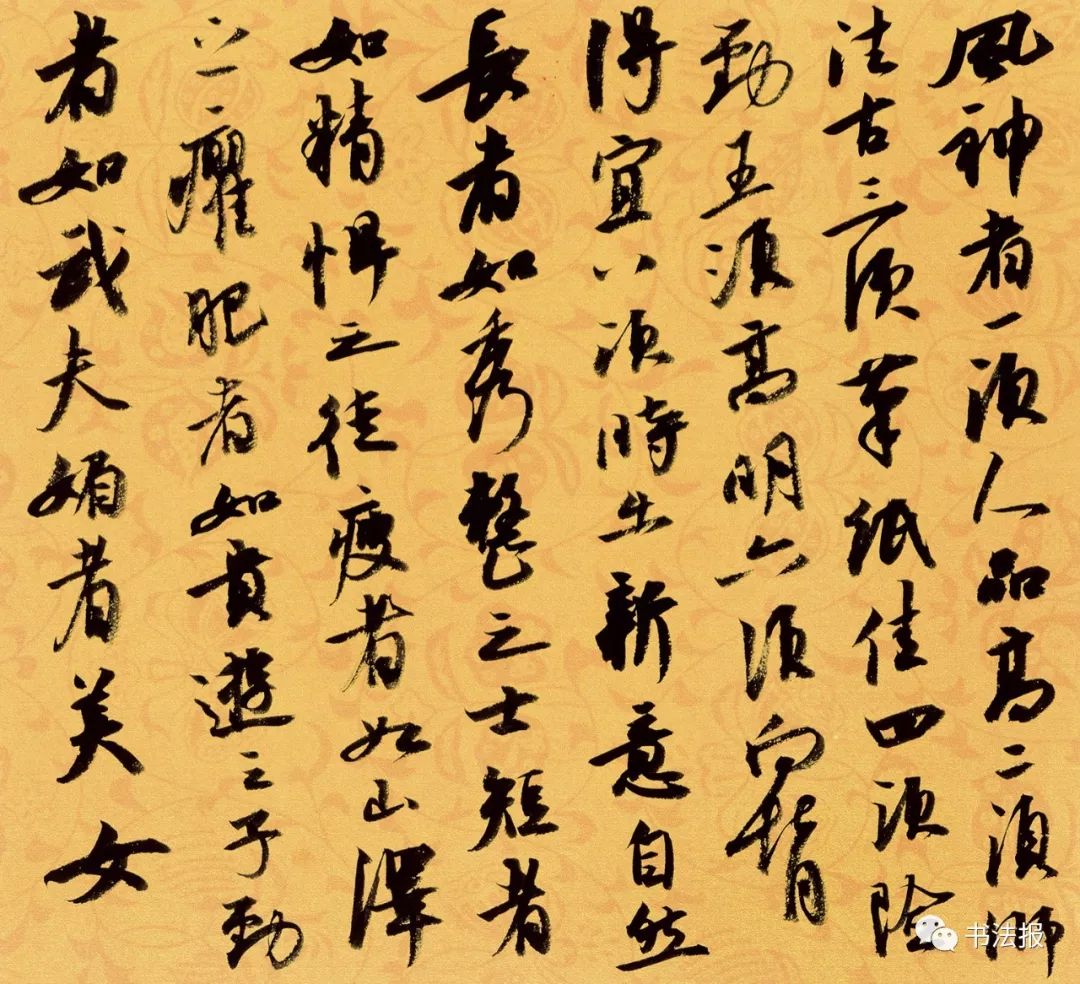 風神者一須人品高二須師
法古三須筆紙佳四須險
勁五須高明六須向背
得宜八須時出新意自然
長者如秀整之士短者
如精悍之徒瘦者如山澤
之癯肥者如貴遊之子勁
者如武夫媚者美女
书法报